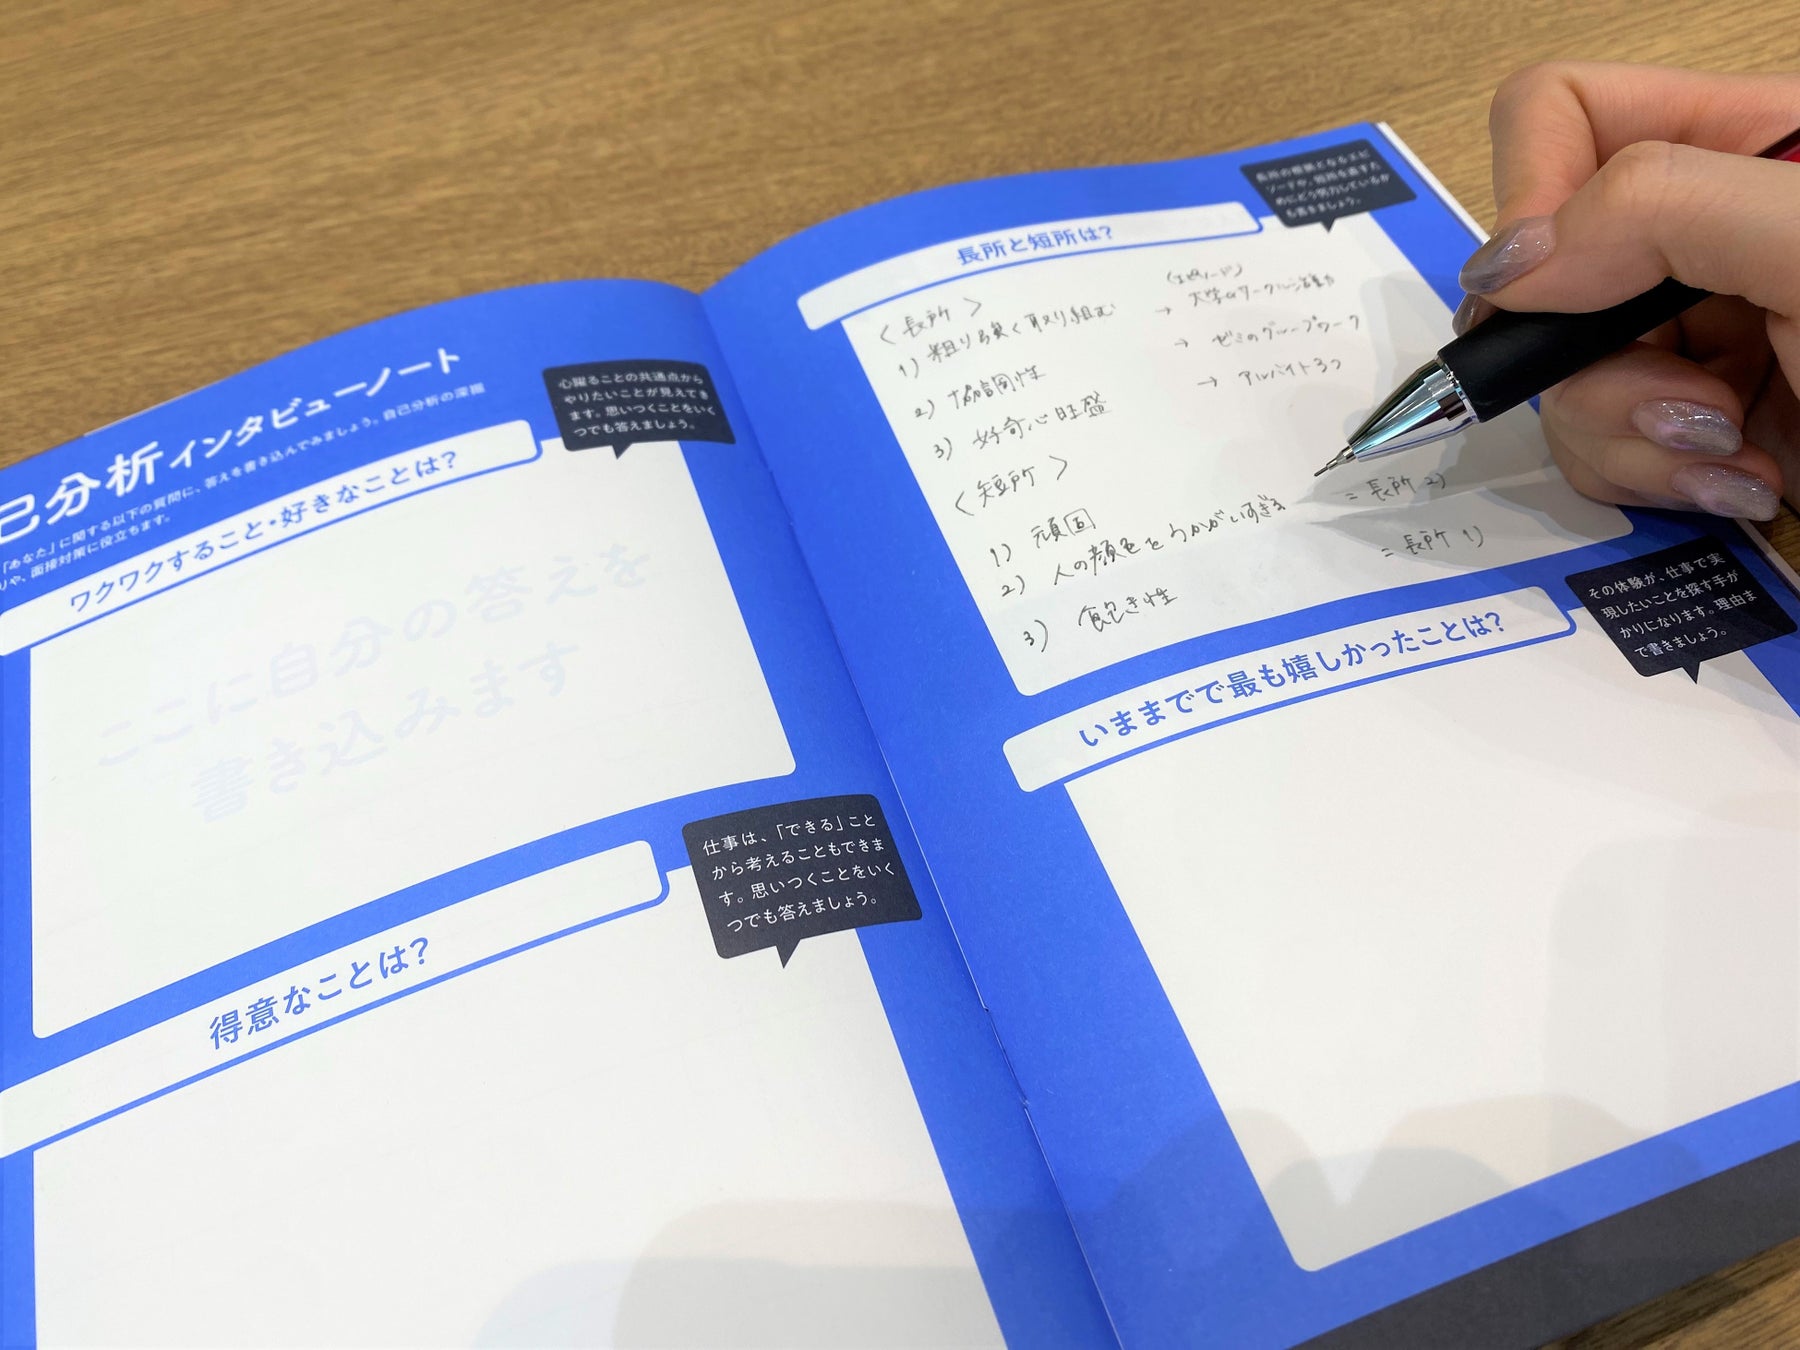 己分析インタビューノート
「あなた」に関する以下の質問に、答えを書き込んでみましょう。自己分析の深掘
りや、面接対策に役立ちます。
ワクワクすること・好きなことは?
心躍ることの共通点から
やりたいことが見えてき
ます。思いつくことをいく
つでも答えましょう。
ここに自分の答えを
書き込みます
得意なことは?
仕事は、「できる」こと
から考えることもできま
す。思いつくことをいく
つでも答えましょう。
長所と短所は?
長所の根拠となるエピ
ソードや、短所を直すた
めにどう努力しているか
も書きましょう。
<長所>
(エピソード)
1) 粗り強く取り組む → 大学のサークル活動
2) 協調性 → ゼミのグループワーク
3) 好奇心旺盛 → アルバイト3つ
<短所>
1) 頑固
2) 人の顔色をうかがいすぎる = 長所 2)
3) 飽き性 = 長所 1)
いままでで最も嬉しかったことは?
その体験が、仕事で実
現したいことを探す手が
かりになります。理由ま
で書きましょう。